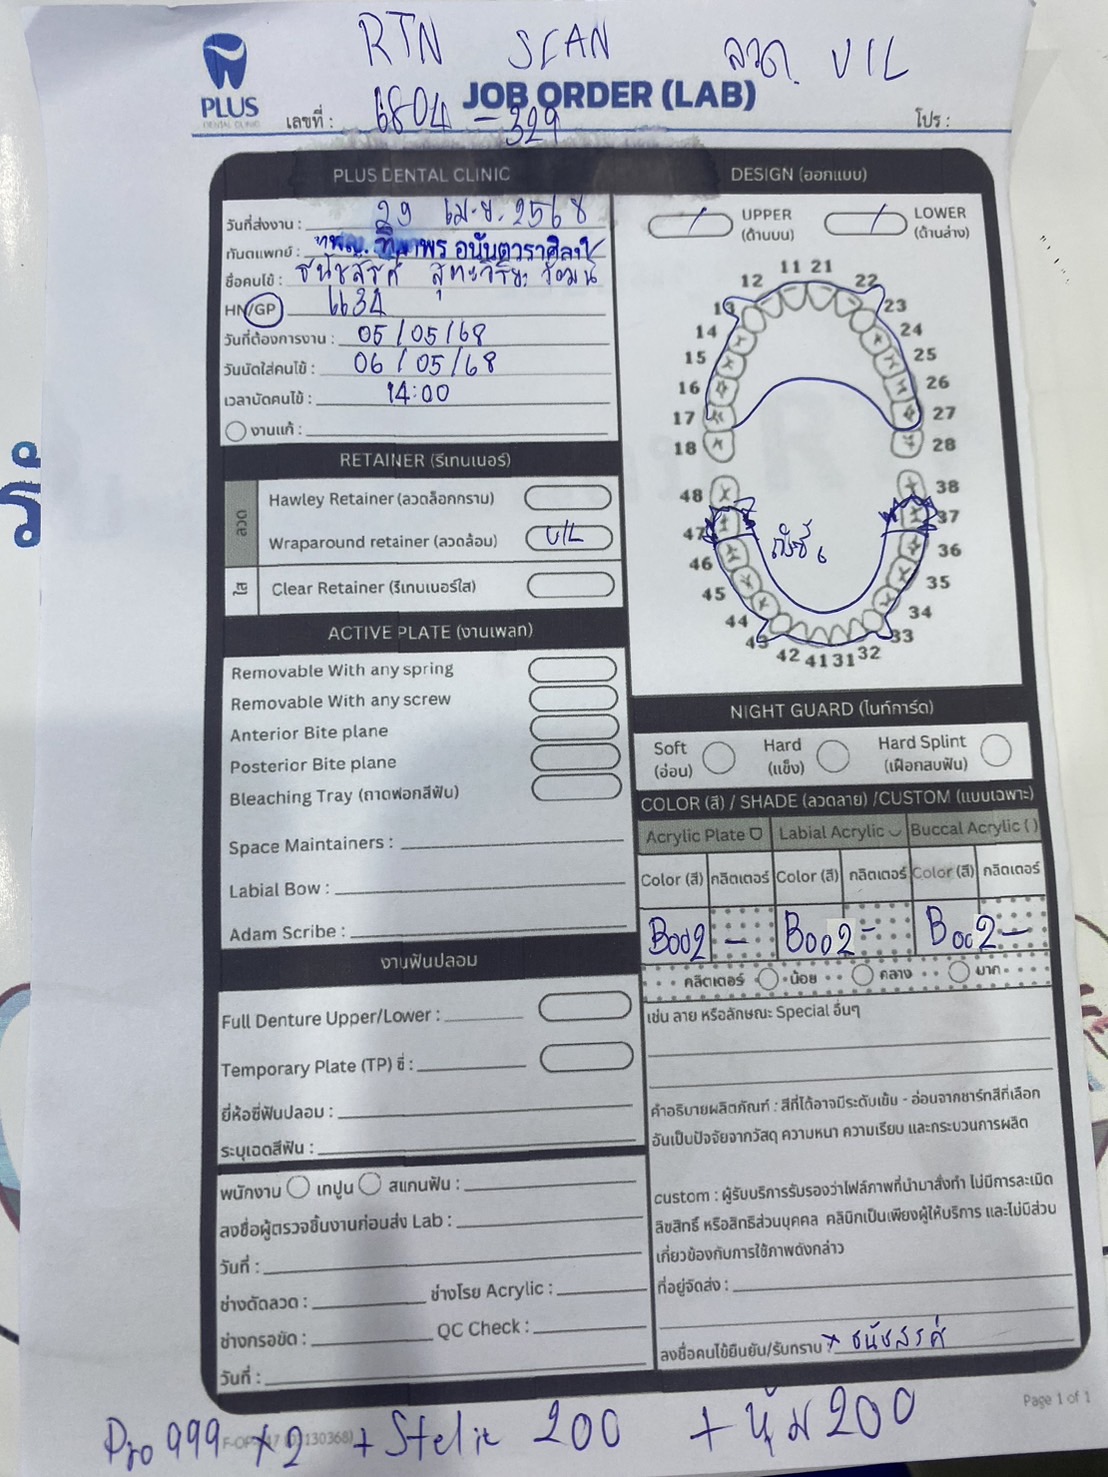 RTN SCAN ลวด U/L
PLUS
DENTAL CLINIC
JOB ORDER (LAB)
เลขที่ : 6804 - 329
โปร :
PLUS DENTAL CLINIC
วันที่ส่งงาน : 29 เม.ย. 2568
ทันตแพทย์ : ทพญ. อนันตวราศิลป์
ชื่อคนไข้ : ธนัชสรศ์
HN/GP 6634
วันที่ต้องการงาน : 05/05/68
วันนัดใส่คนไข้ : 06/05/68
เวลานัดคนไข้ : 14:00
งานแก้ :
RETAINER (รีเทนเนอร์)
ลวด
Hawley Retainer (ลวดล็อกกราม)
Wraparound retainer (ลวดล้อม) U/L
ใส
Clear Retainer (รีเทนเนอร์ใส)
ACTIVE PLATE (งานเพลท)
Removable With any spring
Removable With any screw
Anterior Bite plane
Posterior Bite plane
Bleaching Tray (ถาดฟอกสีฟัน)
Space Maintainers :
Labial Bow :
Adam Scribe :
งานฟันปลอม
Full Denture Upper/Lower :
Temporary Plate (TP) ซี่ :
ยี่ห้อซี่ฟันปลอม :
ระบุเฉดสีฟัน :
พนักงาน เทปูน สแกนฟัน :
ลงชื่อผู้ตรวจชิ้นงานก่อนส่ง Lab :
วันที่ :
ช่างดัดลวด : ช่างโรย Acrylic :
ช่างกรอขัด : QC Check :
วันที่ :
DESIGN (ออกแบบ)
/ UPPER (ด้านบน) / LOWER (ด้านล่าง)
11 21
12 22
13 23
14 24
15 25
16 26
17 27
18 28
48 38
47 37
46 36
45 35
44 34
43 33
42 41 31 32
NIGHT GUARD (ไนท์การ์ด)
Soft (อ่อน) Hard (แข็ง) Hard Splint (เฝือกสบฟัน)
COLOR (สี) / SHADE (ลวดลาย) /CUSTOM (แบบเฉพาะ)
Acrylic Plate Labial Acrylic Buccal Acrylic ( )
Color (สี) กลิตเตอร์ Color (สี) กลิตเตอร์ Color (สี) กลิตเตอร์
B002 - B002 - B002 -
กลิตเตอร์ น้อย กลาง มาก
เช่น ลาย หรือลักษณะ Special อื่นๆ
คำอธิบายผลิตภัณฑ์ : สีที่ได้อาจมีระดับเข้ม - อ่อนจากชาร์ทสีที่เลือก
อันเป็นปัจจัยจากวัสดุ ความหนา ความเรียบ และกระบวนการผลิต
custom : ผู้รับบริการรับรองว่าไฟล์ภาพที่นำมาสั่งทำ ไม่มีการละเมิด
ลิขสิทธิ์ หรือสิทธิส่วนบุคคล คลินิกเป็นเพียงผู้ให้บริการ และไม่มีส่วน
เกี่ยวข้องกับการใช้ภาพดังกล่าว
ที่อยู่จัดส่ง :
ลงชื่อคนไข้ยืนยัน/รับทราบ x ธนัชสรศ์
Page 1 of 1
Pro 999 x 2 + Stelic 200 + หุ้ม 200